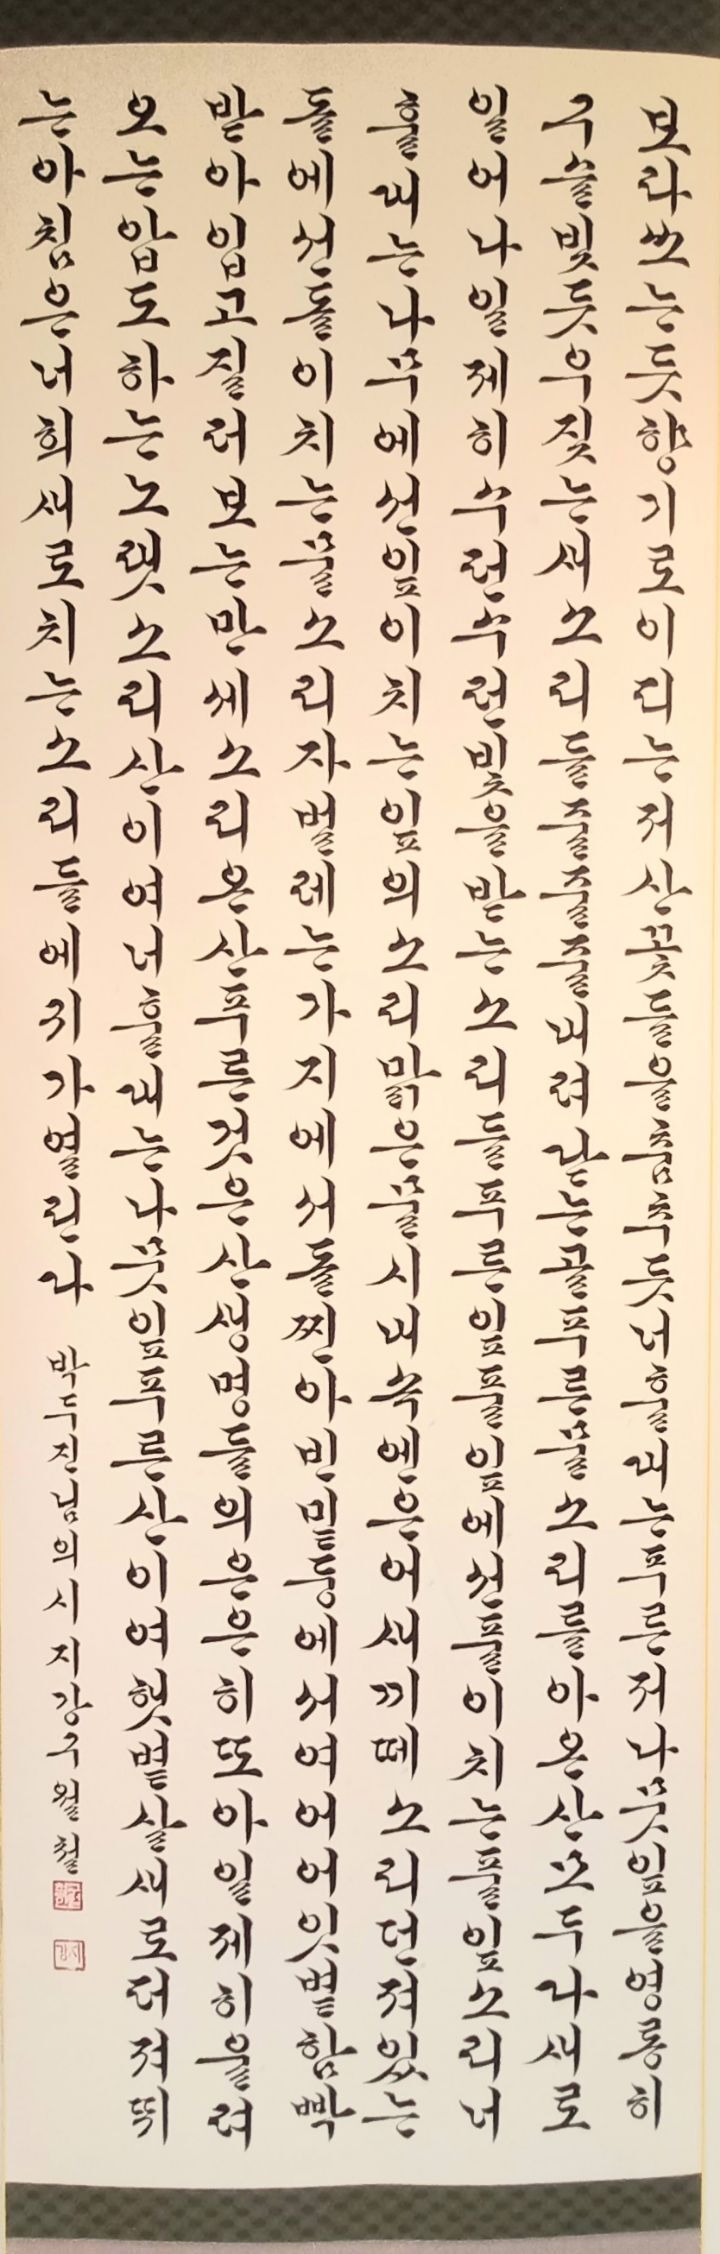 보라쏘는듯향기로이피는저산꽃들을춤추듯너훌대는푸른저나뭇잎을영롱히
구슬빚듯우짖는새소리들줄줄줄내려닫는골푸른물소리를아온산모두다새로
일어나일제히수런수런빛을받는소리들푸른잎풀잎에선풀이치는풀잎소리너
훌대는나무에선잎이치는잎의소리맑은물시내속엔은어새끼떼소리던져있는
돌에선돌이치는물소리자벌레는가지에서돌찐아빈밑둥에서여어어잇볕함빡
받아입고질러보는만세소리온산푸른것은산생명들의은은히또아일제히울려
오는압도하는노랫소리산이여너훌대는나뭇잎푸른산이여햇볕살새로퍼져뛰
는아침은너희새로치는소리들에귀가열린다 박두진님의시 지강구월철